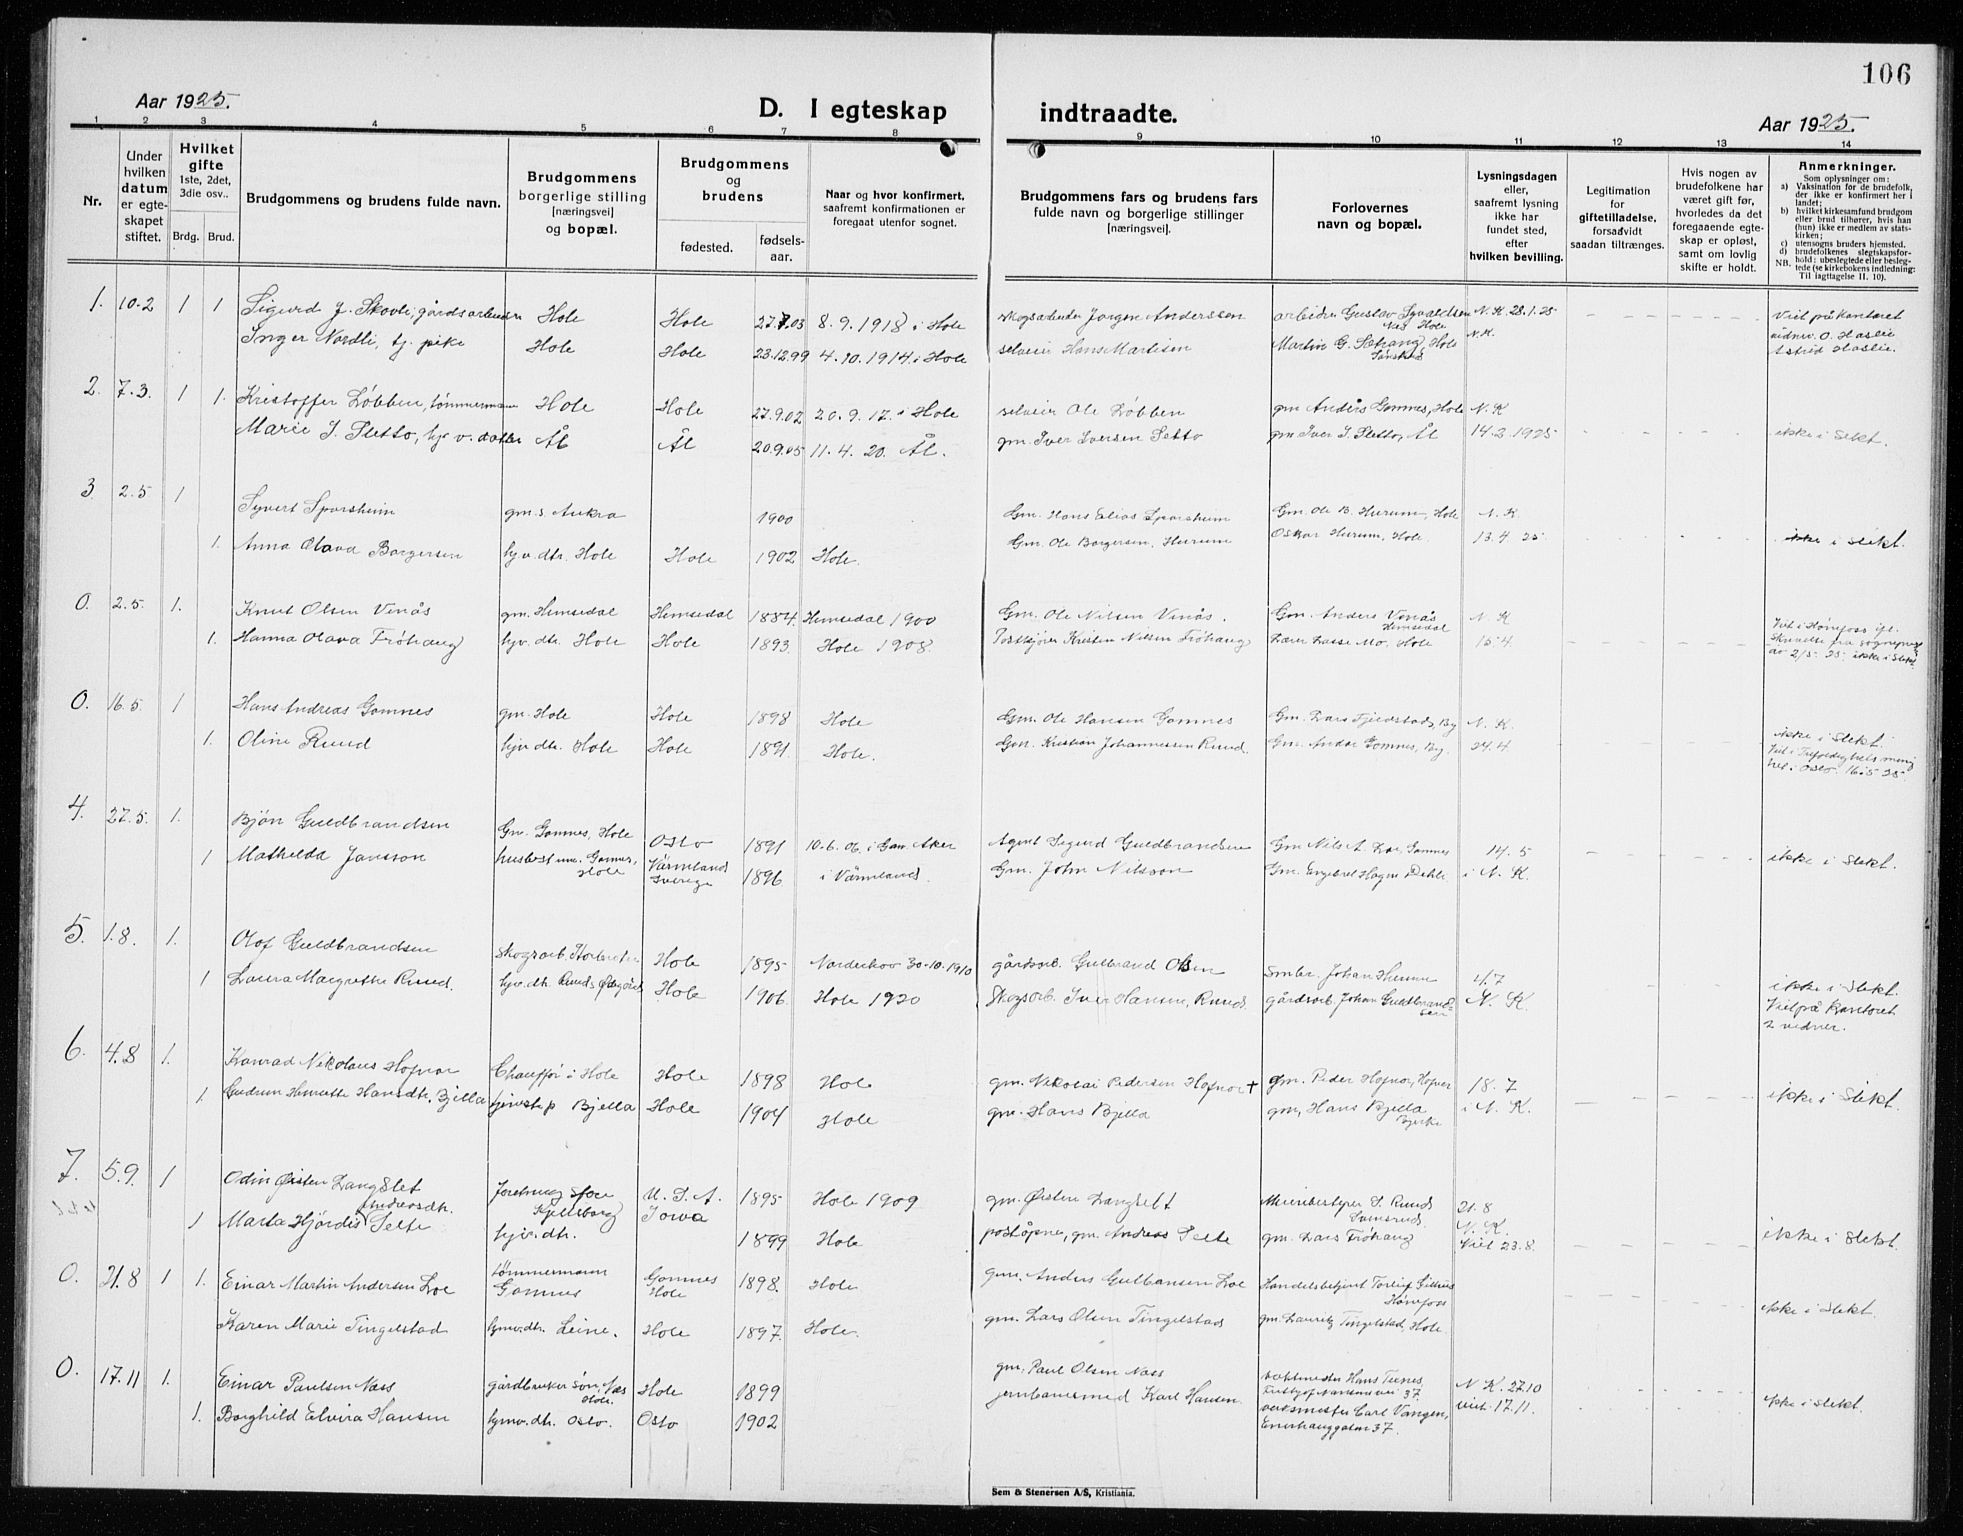 106
Aar 1925.
D. I egteskap indtraadte.
Aar 1925.
1 2 3 4 5 6 7 8 9 10 11 12 13 14
Nr.
Under hvilken datum er egteskapet stiftet.
Hvilket gifte 1ste, 2det, 3die osv..
Brdg. Brud.
Brudgommens og brudens fulde navn.
Brudgommens borgerlige stilling [næringsvei] og bopæl.
Brudgommens og brudens
fødested. fødselsaar.
Naar og hvor konfirmert, saafremt konfirmationen er foregaat utenfor sognet.
Brudgommens fars og brudens fars fulde navn og borgerlige stillinger [næringsvei].
Forlovernes navn og bopæl.
Lysningsdagen eller, saafremt lysning ikke har fundet sted, efter hvilken bevilling.
Legitimation for giftetilladelse, forsaavidt saadan tiltrænges.
Hvis nogen av brudefolkene har været gift før, hvorledes da det foregaaende egteskap er opløst, samt om lovlig skifte er holdt.
Anmerkninger.
Som oplysninger om:
a) Vaksination for de brudefolk, der ikke er konfirmert her i landet;
b) hvilket kirkesamfund brudgom eller brud tilhører, hvis han (hun) ikke er medlem av statskirken;
c) utensogns bruders hjemsted.
d) brudefolkenes slegtskapsforhold: ubeslegtede eller beslegtede (se kirkebokens indledning: NB. Til iagttagelse II. 10).
1. 10-2 1 1 Sigurd J. Skovli, gårdsarbeider Hole Hole 27.7.03 8.9.1918 i Hole skogsarbeider Jørgen Anderssen arbeider Gustav Syvaldsen Næs Hole N.K. 28.1.25 Viet på kontoret
Inger Nordli, tj. pike Hole Hole 23.12.99 4.10.1914 i Hole selveier Hans Martisen Martin G. Hole N.K. vidner O. Haslie Astrid Haslie.
2. 7.3. 1 1. Kristoffer Løbben, tømmermann Hole Hole 27.9.02 20.9.17. i Hole selveier Ole Løbben gm Anders Gomnes, Hole N.K
Marie I. Sletto, hjv. datter Ål Ål 20.9.05 11.4.20. Ål. gm. Iver Iversen Setto gm Iver I. Sletto, Ål 14.2.1925 ikke i Slekt.
3 2.5 1 Syvert Sparsheim gm.s Aukra 1900 Gm. Hans Elias Sparsheim Gm. Ole B. Hurum, Hole N.K.
1. Anna Olava Borgersen hjv. dtr. Hole Hole 1902 Hole. Gm. Ole Borgersen, Hurum Oskar Hurum, Hole. 13.4.25 ikke i slekt.
0. 2.5. 1. Knut Olsen Venås gm. Hemsedal Hemsedal 1884. Hemsedal 1900 Gm. Ole Nilsen Venås. Gm. Anders Venås Hemsedal N.K
1. Hanna Olava Frøhaug hjv. dtr. Hole Hole 1893. Hole 1908. Postkjører Kristen Nilsen Frøhaug Lærer Lasse Mo. Hole 15.4 Viet i Hønefoss ifl. Skrivelse fra sogneprest av 2/5-25. ikke i Slekt
0. 16.5. 1 Hans Andreas Gomnes gm. Hole Hole 1898 Hole Gm. Ole Hansen Gomnes Gm. Lars Fjeldstad, By N.K.
1. Oline Rund hjv. dtr. Hole Hole 1891. Hole. Gm. Kristian Johannessen Rund. Gm. Andor Gomnes, By. 24.4 ikke i slekt. Viet i Trefoldighets menighet i Oslo. 16.5.25
4. 27.5. 1. Bjøn Guldbrandsen Gm. Gomnes, Hole Oslo 1891 10.6.06. i Gam. Aker Agent Sigurd Guldbrandsen Gm Nils A. Loe, Gomnes 14.5
1 Mathelda Jansson husbest. Gomnes, Hole Värmland Sverige 1896 i Värmland. Gm. John Nilsson Gm. Engebret Hagen Dehli i N.K. ikke i slekt.
5. 1.8. 1. Olof Guldbrandsen Skogsarb. Hole 1895 Norderhov 30-10-1910 gårdsarb. Gulbrand Olsen Smbr. Johan 4.7
1 Laura Margrethe Rund. hjv. dtr. Rund, Hole 1906. Hole 1920 Skogsarb. Iver Hansen, Rund gårdsarb. Johan Guldbrandsen N.K. ikke i slekt. Viet på Kontoret 2 vidner.
6. 4.8 1. Konrad Nikolaus Hofnor Chauffør i Hole Hole 1898 Hole gm. Nikolai Pedersen Hofnor + gm. Peder Hofnor, Hofnor 18.7
1. Gudrun Henriette Hansdtr. Bjella Bjella Hole 1904 Hole gm. Hans Bjella gm, Hans Bjella Bjerke i N.K. ikke i Slekt.
7. 5.9. 1 Odin Øisten Langslet U.S.A. Iowa 1895 Hole 1909 gm. Østen Langslet Meieribestyrer S. Rund Svensrud. 21.8
1 Marta Hjördis Andersdtr. Selte hjv. dtr. 1899 Hole poståpner, gm. Andreas Selte gm. Lars Frøhaug N.K. Viet 23.8. ikke i slekt.
0. 21.8 1 1. Einar Martin Andersen Loe tømmermann Gomnes Gomnes Hole 1898. Hole gm. Anders Gulbransen Loe Handelsbetjent Torleif Hønefoss ikke i slekt.
Karen Marie Tingelstad hjmv. dtr. Leine. Hole 1897. Hole. gm. Lars Olsen Tingelstad gm. Lauritz Tingelstad, Hole.
0. 17.11 1. Einar Paulsen Næss gårdbruker Søn. Næs Hole. Hole 1899 gm. Paul Olsen Næss Hans N.K. 27.10
1. Borghild Elvira Hansen hjmv. dtr. Oslo. Oslo 1902 jernbanemand Karl Hansen. verksmester Carl Vangen, Enerhauggaten 37. viet 17.11. ikke i slekt.
Sem & Stenersen A/S, Kristiania.